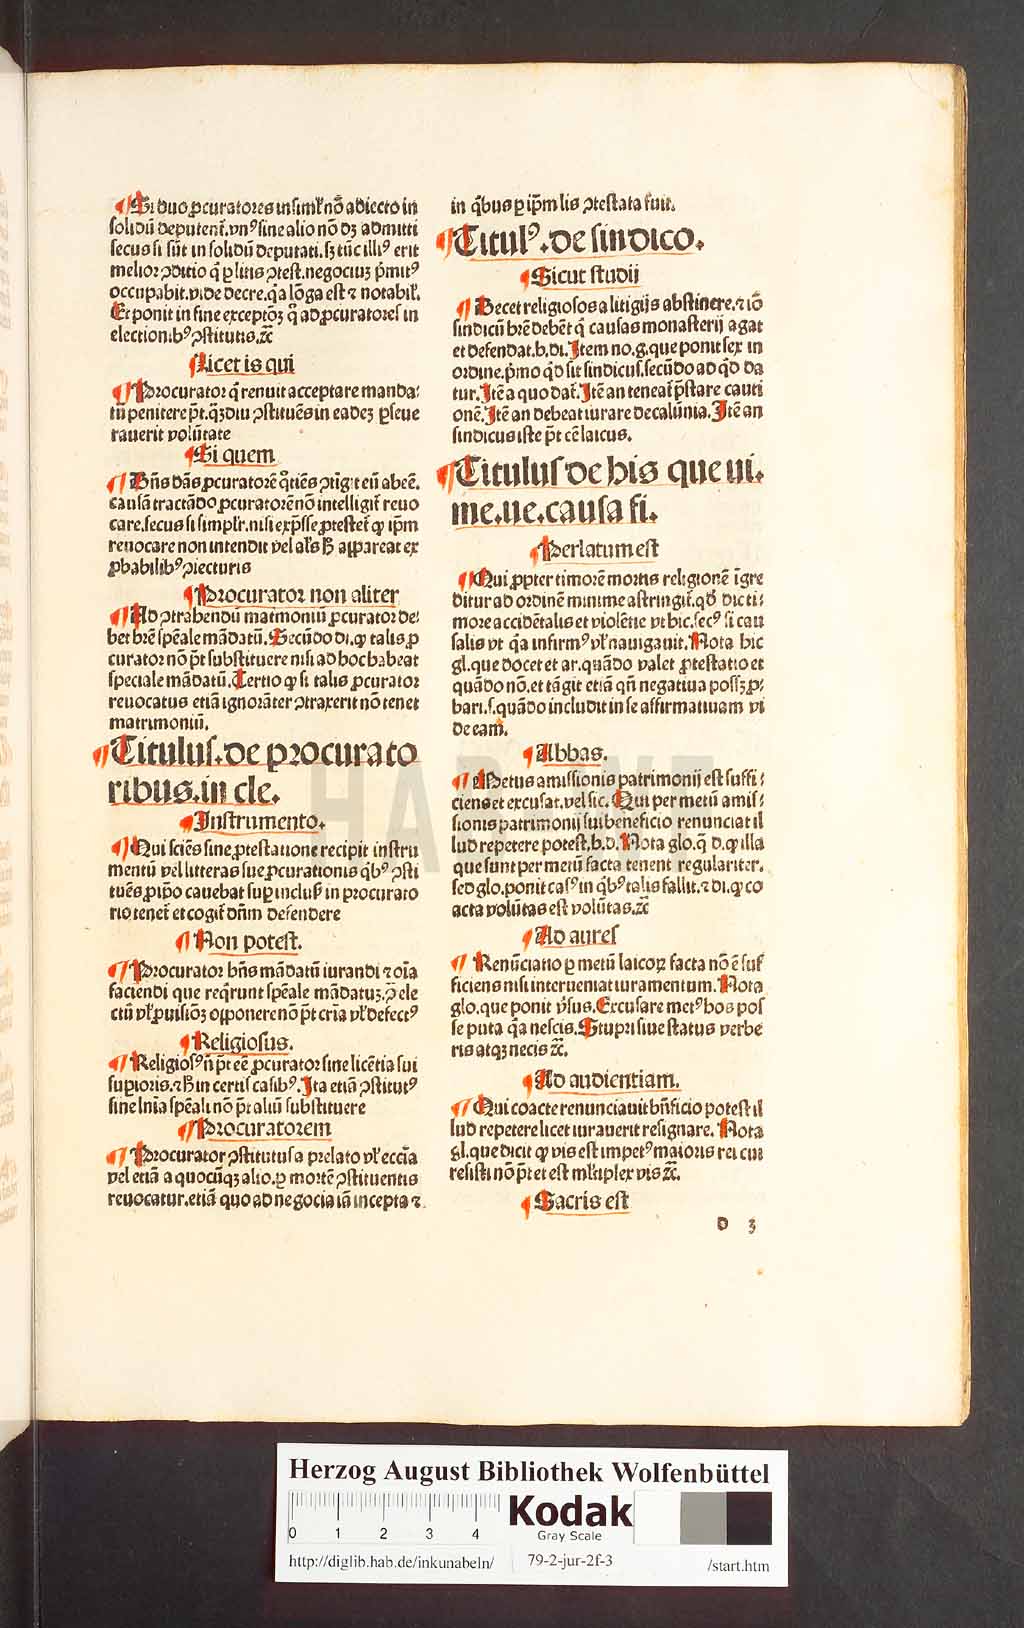 ¶ Si duo ꝓcuratores insimĺ nõ adiecto in
solidũ deputent᷑.vnꝰ sine alio nõ dꝫ admitti
secus si sũt in solidũ deputati.sꝫ tũc illiꝰ erit
melior ꝯditio q̃ ꝑ litis ꝯtest.negociuꝫ p̃mitꝰ
occupabit.vide decre.q̃a lõga est ⁊ notabil᷑.
Et ponit in fine exceptõꝫ q̃ ad ꝓcuratores in
electionibꝰ ꝯstitutis.⁊c̃
Licet is qui
¶ Procurator q̃ renuit acceptare manda⸗
tũ penitere p̃t.q̃ꝫdiu ꝯstituẽs in eadeꝫ ꝑseue
rauerit volũtate
¶ Si quem
¶ Bñs dãs ꝓcuratorẽ q̃tiẽs ꝯtigit eũ abeẽ.
causã tractãdo ꝓcuratorẽ nõ intelligit᷑ reuo
care.secus si simplr̃.nisi exp̃sse ꝓtestet᷑ ꝙ ip̃m
reuocare non intendit vel al̃s ꝭ appareat ex
ꝓbabilibꝰ ꝯiecturis
¶ Procurator non aliter
¶ Ad ꝯtrahendũ matmoniũ ꝓcurator de⸗
bet hr̃e sp̃eale mãdatũ.Secũdo di.ꝙ talis ꝓ
curator nõ p̃t substituere nisi ad hoc habeat
speciale mãdatũ.Tertio ꝙ si talis ꝓcurator
reuocatus etiã ignorãter ꝯtraxerit nõ tenet
matrimoniũ.
¶ Titulus.de procurato
ribus.in cle.
¶ Instrumento.
¶ Qui sciẽs sine ꝓtestatione recipit instru
mentũ vel litteras sue ꝓcurationis q̃bꝰ ꝯsti
tuẽs ꝓip̃o cauebat suꝑ inclusꝭ in procurato
rio tenet᷑ et cogit᷑ dñm defendere
¶ Non potest.
¶ Procurator hñs mãdatũ iurandi ⁊ oĩa
faciendi que req̃runt sp̃eale mãdatuꝫ.ꝓ ele
ctũ vĺ ꝓuisiõꝫ opponere nõ p̃t cria vĺ defectꝰ
¶ Religiosus.
¶ Religiosꝰ ñ p̃t eẽ ꝓcurator sine licẽtia sui
suꝑioris.⁊ ꝭ in certis casibꝰ.Ita etiã ꝯstitutꝰ
sine lnĩa sp̃eali nõ p̃t aliũ substituere
¶ Procuratorem
¶ Procurator ꝯstitutus a prelato vĺ ecc̃ia
vel etiã a quocũqꝫ alio.ꝑ mortẽ ꝯstituentis
reuocatur.etiã quo ad negocia iã incepta ⁊
in q̃bus ꝑ ip̃m lis ꝯtestata fuit.
¶ Titulꝰ.de sindico.
¶ Sicut studii
¶ Decet religiosos a litigijs abstinere.⁊ iõ
sindicũ hr̃e debẽt q̃ causas monasterij agat
et defendat.h.di.Item no.g.que ponit sex in
ordine.p̃mo q̃d sit sindicus.secũdo ad q̃d da
tur.Itẽ a quo dat᷑.Itẽ an teneat᷑ p̃stare cauti
onẽ.Itẽ an debeat iurare de calũnia.Itẽ an
sindicus iste p̃t cẽ laicus.
¶ Titulus de his que ui.
me.ue.causa fi.
¶ Perlatum est
¶ Qui ꝓpter timorẽ mortis religionẽ ĩgre
ditur ad ordinẽ minime astringit᷑.q̃d dic ti⸗
more accidẽtalis et violẽtie vt hic.secꝰ si cau
salis vt q̃a infirmꝰ vĺ nauigauit.Nota hic
gl.que docet et ar.quãdo valet ꝓtestatio et
quãdo nõ.et tãgit etiã qñ negatiua possꝫ ꝓ⸗
bari.s.quãdo includit in se affirmatiuam vi
de eam.
¶ Abbas.
¶ Metus amissionis patrimonij est suffi⸗
ciens et excusat.vel sic.Qui per metũ amis⸗
sionis patrimonij sui beneficio renunciat il
lud repetere potest.h.d.Nota glo.q̃ d.ꝙ illa
que sunt per metũ facta tenent regulariter.
sed glo.ponit casꝰ in q̃bꝰ talis fallit.⁊ di.ꝙ co
acta volũtas est volũtas.⁊c̃
¶ Ad aures
¶ Renũciatio ꝑ metũ laicoꝝ facta nõ ẽ suf
ficiens nisi interueniat iuramentum.Nota
glo.que ponit v̓sus.Excusare metꝰ hos pos
se puta q̃a nescis.Stupri siue status verbe
ris atqꝫ necis ⁊c̃.
¶ Ad audientiam.
¶ Qui coacte renunciauit bñficio potest il
lud repetere licet iurauerit resignare.Nota
gl.que dicit ꝙ vis est impetꝰ maioris rei cui
resisti nõ p̃t et est ml̓tiplex vis ⁊c̃.
¶ Sacris est
D 3
HAB WF
Herzog August Bibliothek Wolfenbüttel
0 1 2 3 4
Kodak
Gray Scale
http://diglib.hab.de/inkunabeln/ 79-2-jur-2f-3 /start.htm